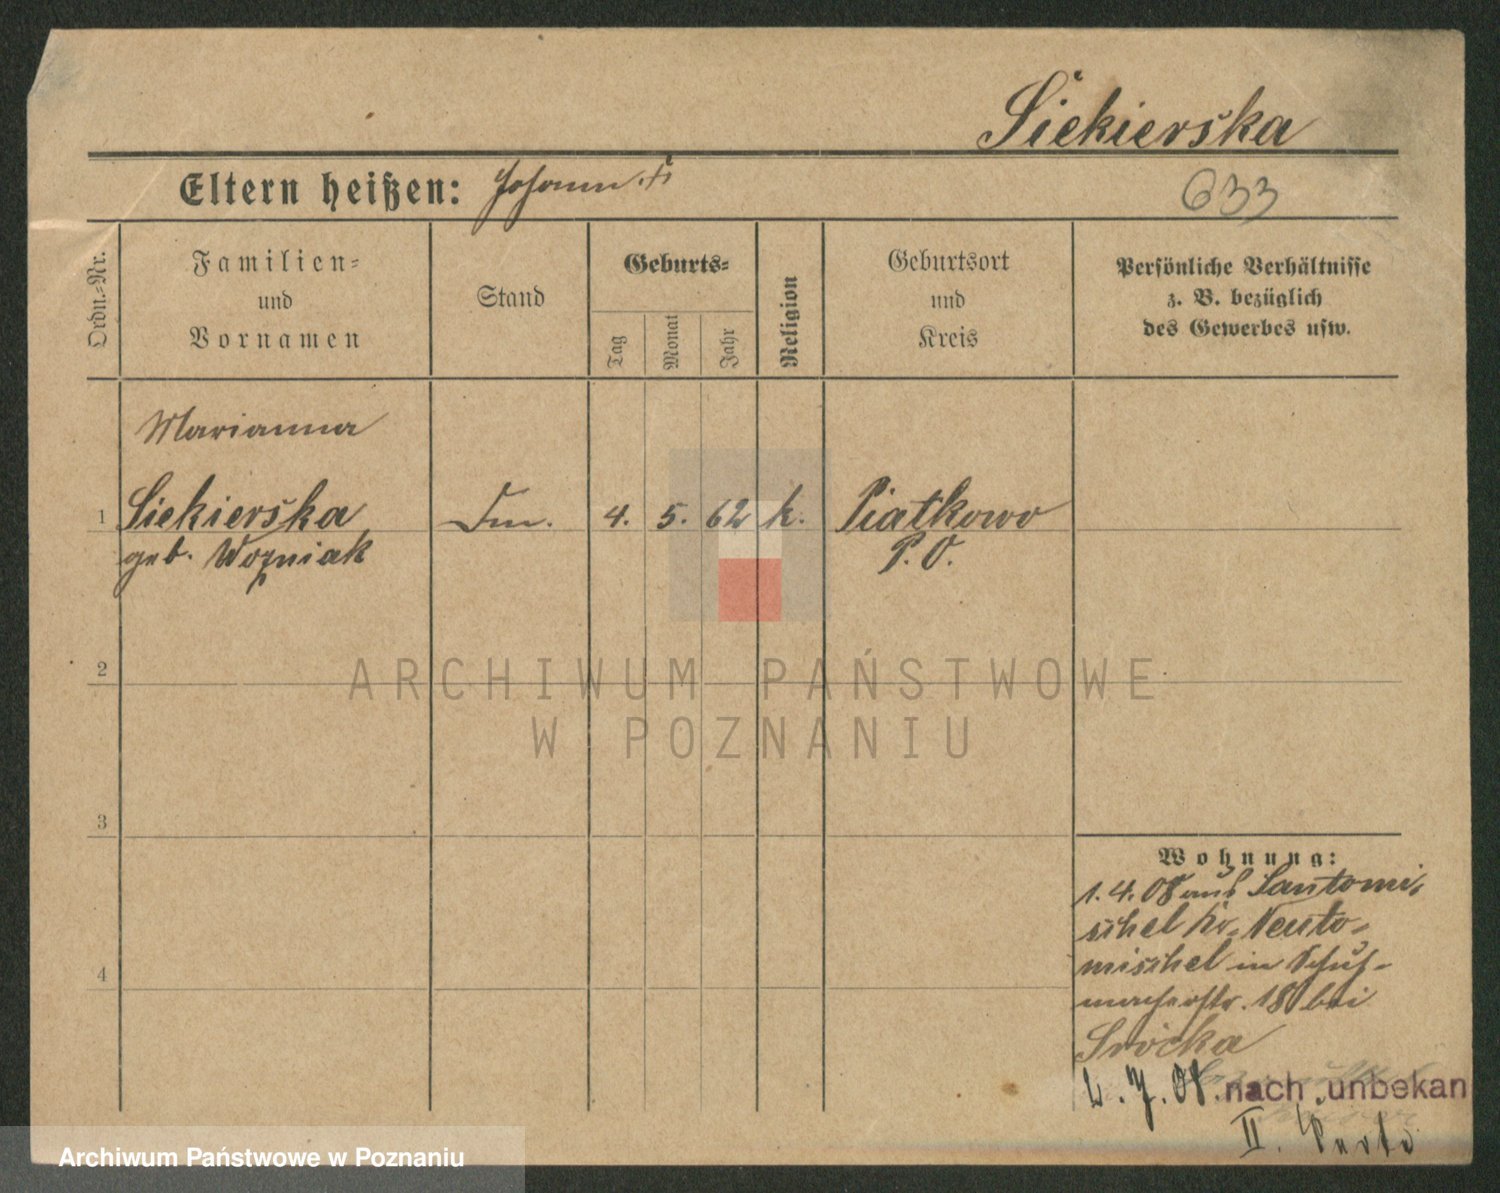 Siekierska
Eltern heißen: Johann
633
Ordn.-Nr.
Familien-
und
Vornamen
Stand
Geburts-
Tag
Monat
Jahr
Religion
Geburtsort
und
Kreis
Persönliche Verhältnisse
z. B. bezüglich
des Gewerbes usw.
Marianna
1 Siekierska 4. 5. 62 k. Piatkowo
geb. Wozniak P. O.
2
ARCHIWUM PAŃSTWOWE
W POZNANIU
3
4
Wohnung:
1. 4. 08 aus Santomi-
schel Kr. Neuto-
mischel in Schuh-
macherstr. 18 bei
Srocka
08. nach unbekan
II.
Archiwum Państwowe w Poznaniu